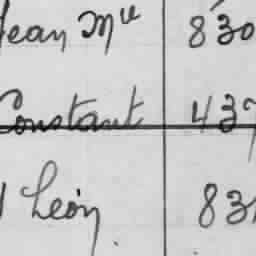 Jean Mle 830
Constant 437
Léon 83